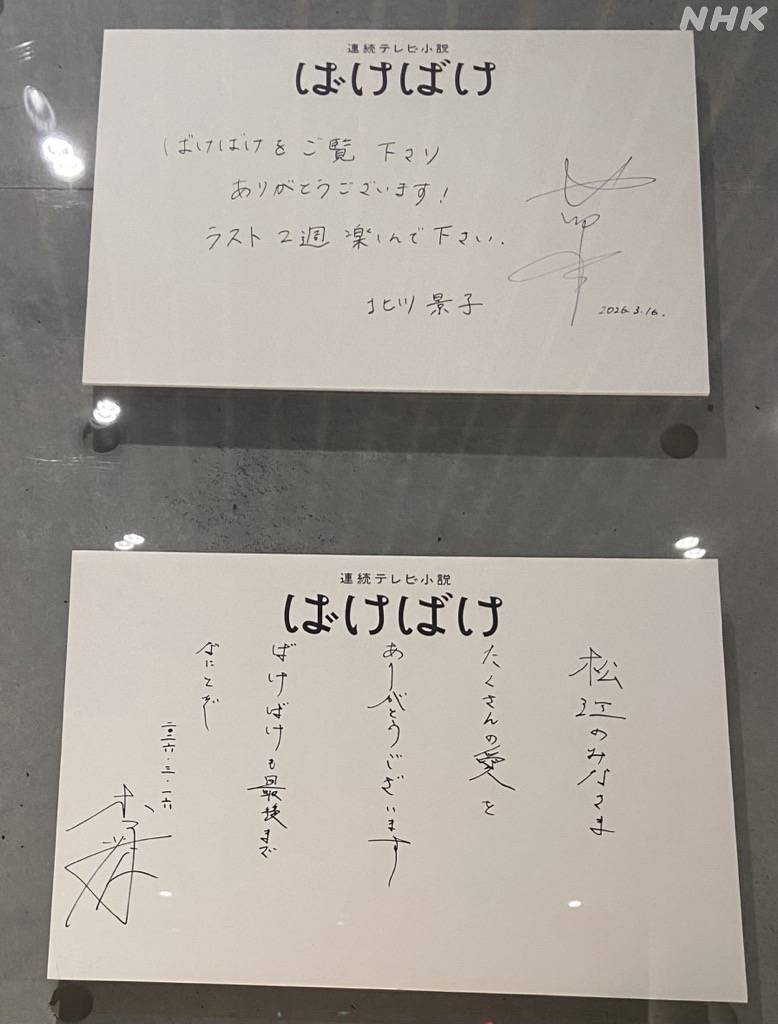 NHK
連続テレビ小説
ばけばけ
ばけばけをご覧下さり
ありがとうございます!
ラスト2週楽しんで下さい.
北川景子
2026.3.16.
連続テレビ小説
ばけばけ
松江のみなさま
たくさんの愛を
ありがとうございます
ばけばけも最後まで
なにとぞ
二〇二六・三・一六